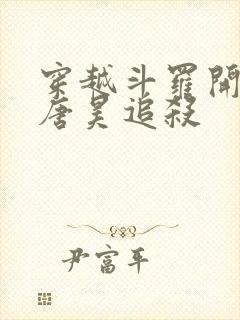 穿越斗羅開
唐昊追殺
尹富平